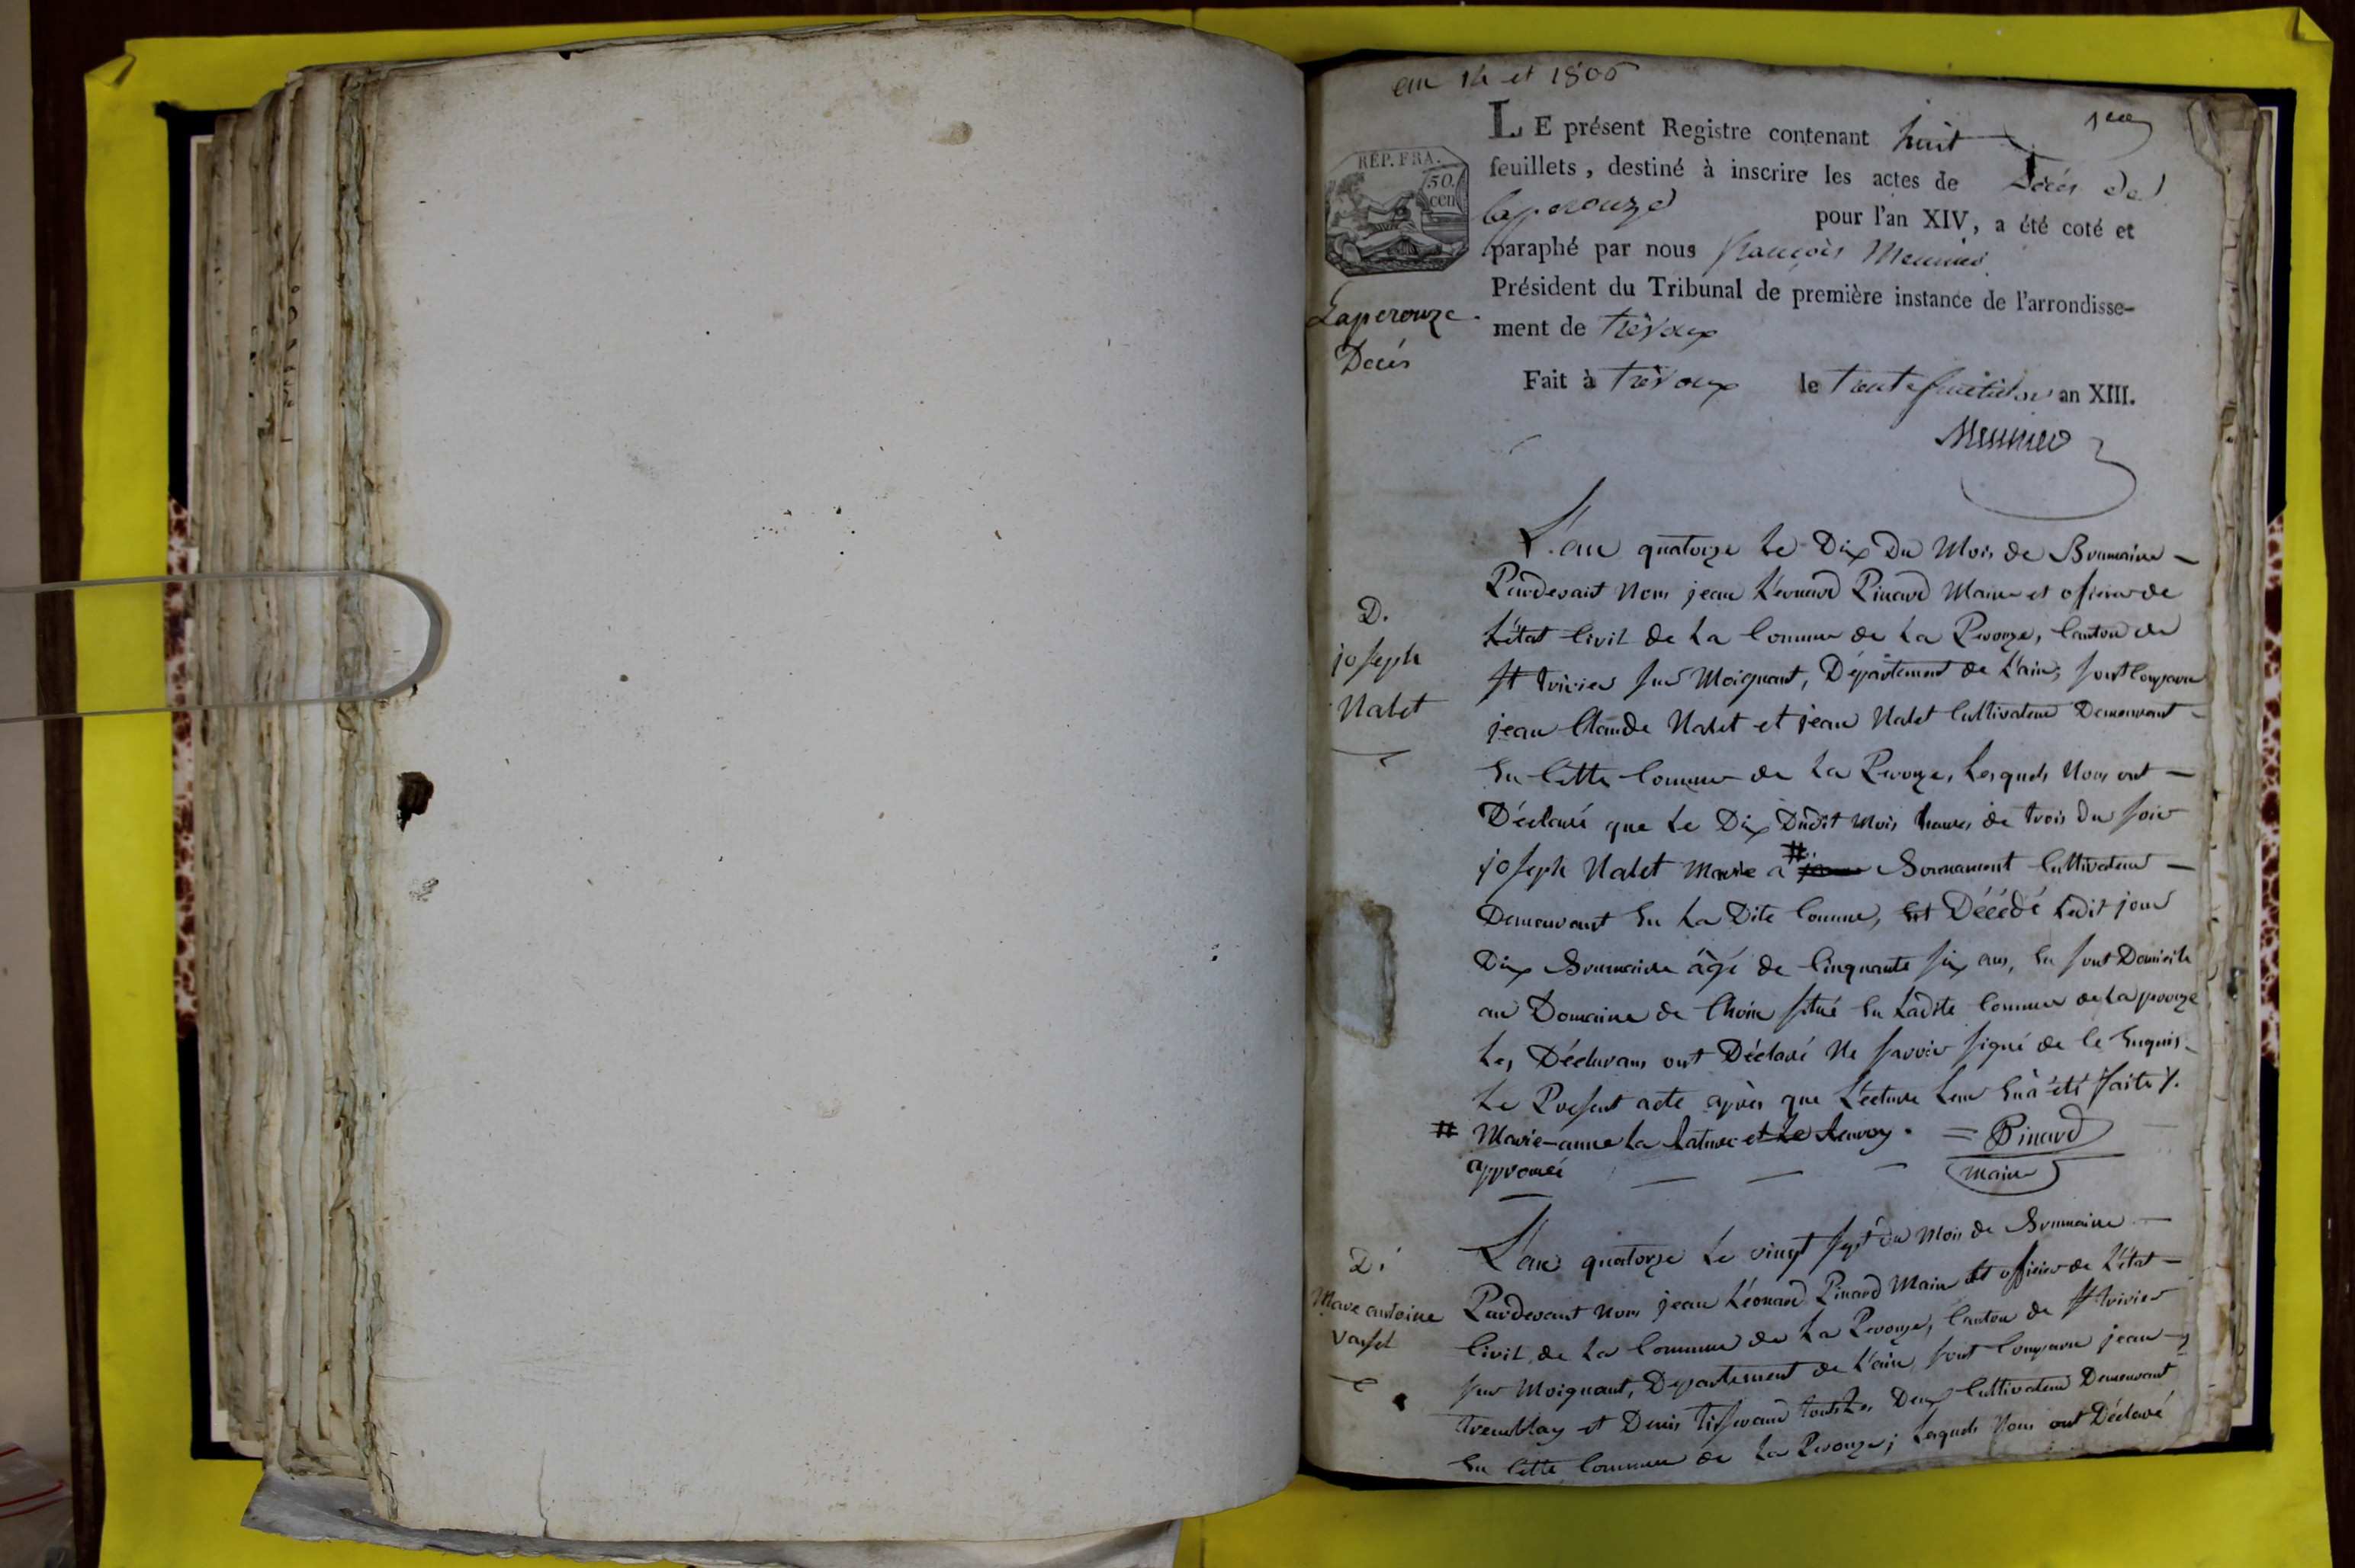 an 14 et 1806
1er
LE présent Registre contenant huit
feuillets, destiné à inscrire les actes de Décés de
laperouze pour l'an XIV, a été coté et
paraphé par nous françois Meunier
Président du Tribunal de première instance de l'arrondisse-
ment de trévoux
Fait à trévoux le trente fructidor an XIII.
Meunier
REP. FRA.
50.
cen
Laperouze
Decés
D.
joseph
Nalet
L'an quatorze Le Dix Du Mois de Brumaire
Pardevant Nous jean Léonard Pinard Maire et officier de
L'état Civil de La Commune de La Perouze, Canton de
St trivier sur Moignant, Département de L'ain, sont Comparu
jean Claude Nalet et jean Nalet Cultivateur Demeurant
En Cette Commune de La Perouze, Lesquels Nous ont
Déclaré que Le Dix Dudit Mois heures de trois Du soir
joseph Nalet Marie a # Bornamont Cultivateur
Demeurant En La Dite Commune, Est Décédé Ledit jour
Dix Brumaire âgé de Cinquante six ans, En sont Domicile
au Domaine de Choin situé En Ladite Commune de La perouze
Les Déclarans ont Déclaré Ne savoir signé de Ce Enquis
Le Present acte après que Lecture Leur En a été faite /.
# Marie-anne La rature et Le Renvoy
approuvés
= Pinard
Maire
D.
Marc antoine
Vasset
L'an quatorze Le vingt sept du Mois de Brumaire
Pardevant Nous jean Léonard Pinard Maire et officier de L'état
Civil de La Commune de La Perouze, Canton de St trivier
sur Moignant, Département de L'ain, sont Comparu jean
tremblay et Denis tisserand touts Les Deux Cultivateur Demeurant
En Cette Commune de La Perouze; Lesquels Nous ont Déclaré